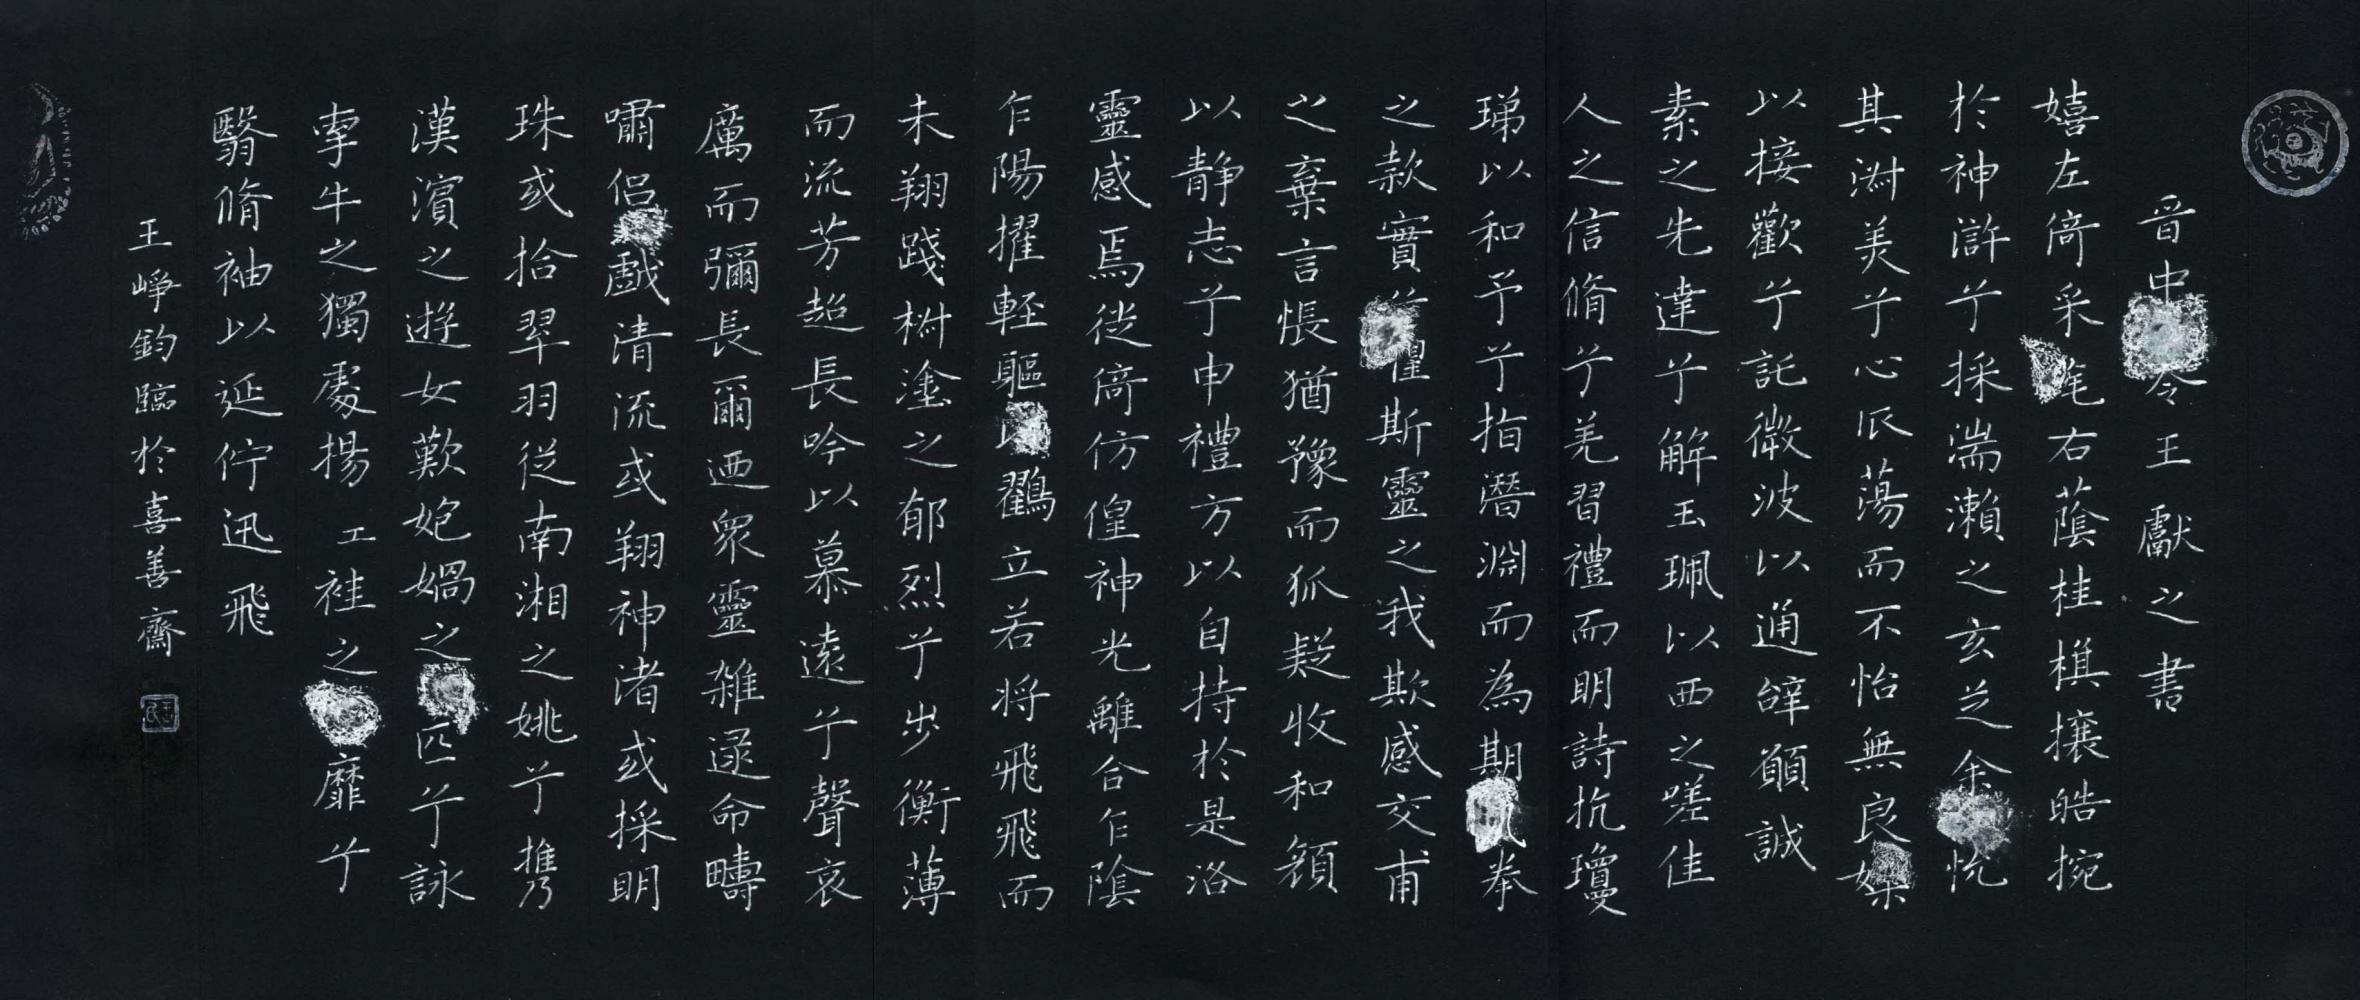 晋中令王獻之書
嬉左倚采旄右蔭桂棋攘皓捥
於神滸兮採湍瀨之玄芝余悦
其淑美兮心振蕩而不怡無良媒
以接歡兮託微波以通辭願誠
素之先達兮解玉珮以要之嗟佳
人之信脩兮羌習禮而明詩抗瓊
珶以和予兮指潛淵而為期拳
之款實懼斯靈之我欺感交甫
之棄言悵猶豫而狐疑收和顏
以静志兮申禮方以自持於是洛
靈感焉徙倚仿偟神光離合乍陰
乍陽擢輕軀鸖立若将飛飛而
未翔踐椒塗之郁烈兮步衡薄
而流芳超長吟以慕遠兮聲哀
厲而彌長爾迺衆靈雜遝命疇
嘯侶戲清流或翔神渚或採明
珠或拾翠羽從南湘之姚兮携
漢濱之遊女歎媧之匹兮詠
牽牛之獨處揚工袿之靡兮
翳脩袖以延佇迅飛
王崢鈞臨於喜善齋